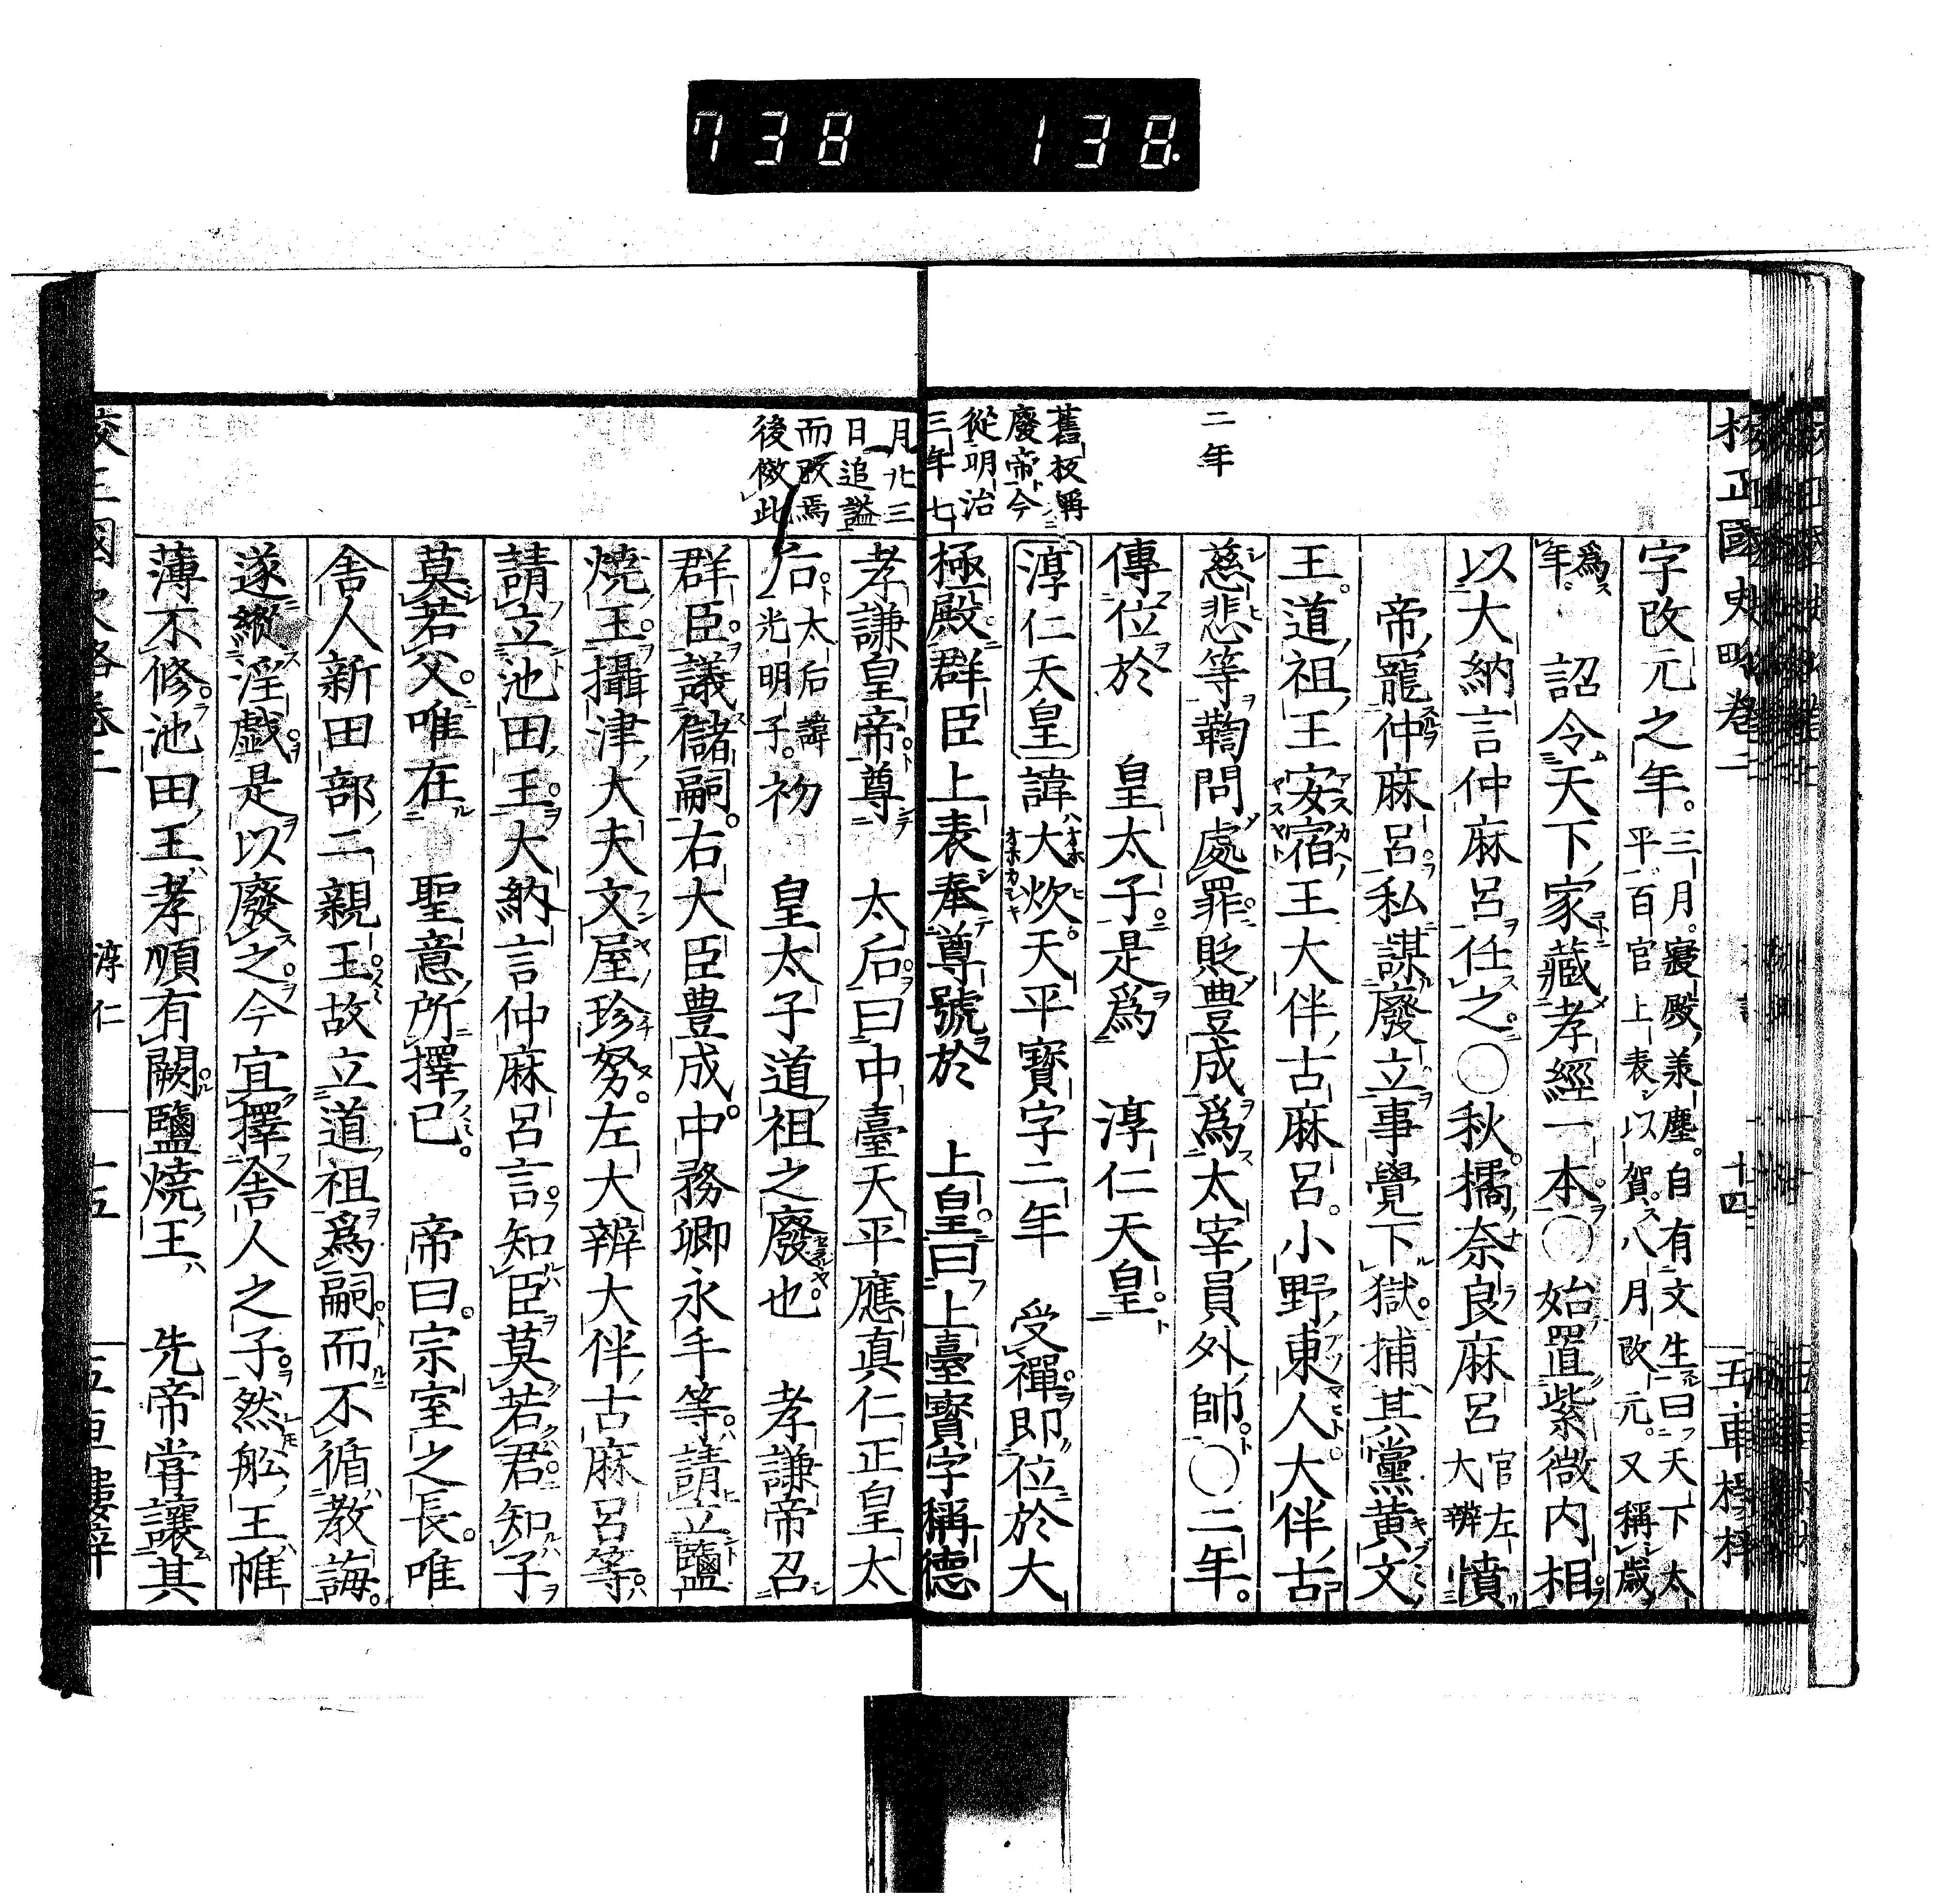 738 138.
校正國史略卷二
十四
五車樓梓
二年
舊板稱
廢帝今
從明治
三年七
字改元之年。三月寢殿承塵。自有文生曰天下太
平百官上表以賀八月改元。又稱歲
爲年。詔令天下家藏孝經一本○始置紫微内相
以大納言仲麻呂任之○秋橘奈良麻呂官左大辨憤
帝寵仲麻呂私謀廢立事覺下獄捕其黨黄文
王。道祖王安宿王大伴古麻呂。小野東人大伴古
慈悲等鞫問處罪貶豊成爲太宰員外帥○二年。
傳位於 皇太子是爲 淳仁天皇
淳仁天皇諱大炊。天平寳字二年 受禪即位於大
極殿群臣上表奉尊號於 上皇曰上臺寳字稱德
月廿三
日追謚
而改焉
後倣此
孝謙皇帝尊 太后曰中臺天平應真仁正皇太
后太后諱光明子。初 皇太子道祖之廢也。 孝謙帝召
群臣議儲嗣。右大臣豊成。中務卿永手等請立鹽
燒王攝津大夫文屋珍努。左大辨大伴古麻呂等
請立池田王大納言仲麻呂言知臣莫若君知子
莫若父。唯在 聖意所擇已。 帝曰宗室之長。唯
舍人新田部二親王故立道祖爲嗣而不循教誨。
遂縱淫戯是以廢之今宜擇舍人之子然舩王帷
薄不修池田王孝順有闕鹽燒王 先帝甞讓其
校正國史略卷二
淳仁
十五
五車樓梓